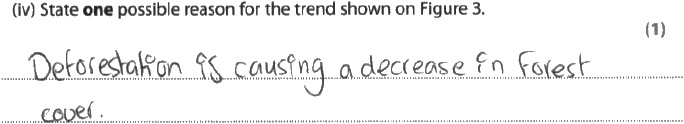 (iv) State one possible reason for the trend shown on Figure 3.
(1)
Deforestation is causing a decrease in forest
cover.